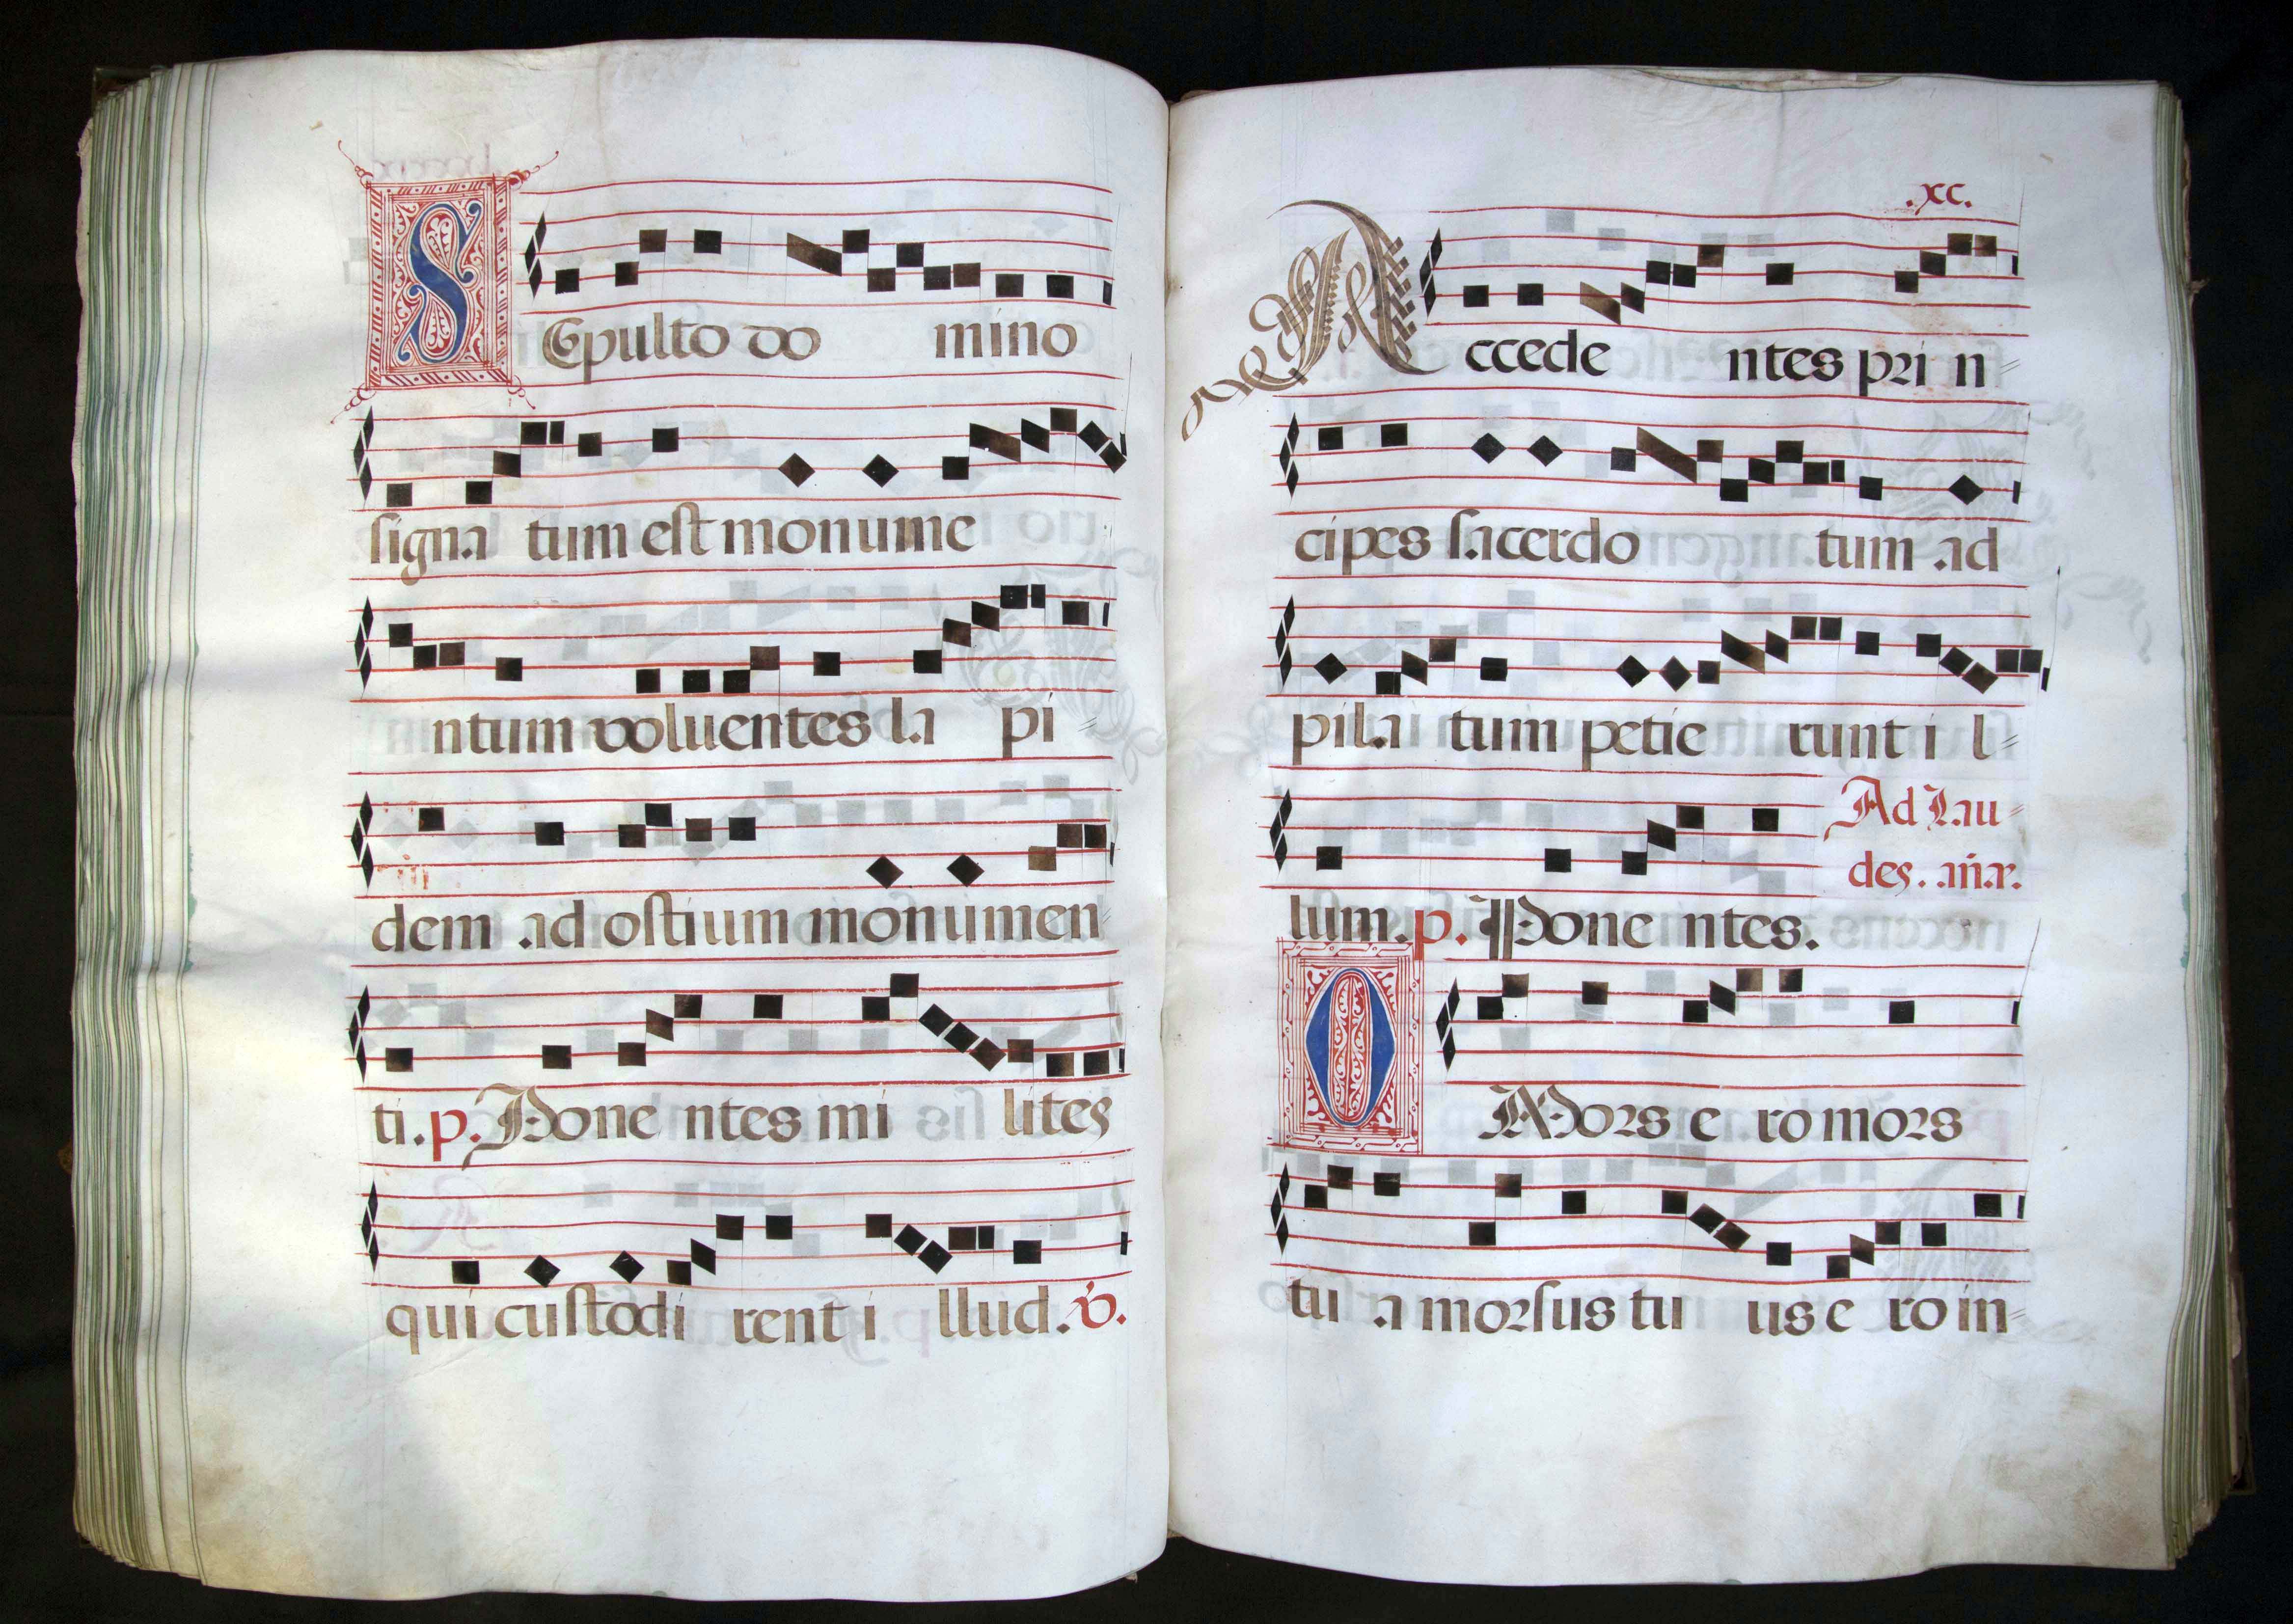 SEpulto do mino
signa tum est monume
ntum voluentes la pi=
dem ad ostium monumen=
ti. p. Pone ntes mi lites
qui custodi rent i llud. v.
.xc.
Accede ntes pri n=
cipes sacerdo tum ad
pila tum petie runt i l=
Ad Lau=
des. aña.
lum. p. Pone ntes.
O Mors e ro mors
tu a morsus tu us e ro in=